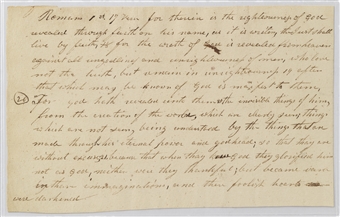 Romans 1st 17 For therein is the righteousness of God
revealed through faith on his name, as it is written the just shall
live by faith, 18 for the wrath of God is revealed from heaven
against all ungodliness and unrighteousness of men, who love
not the truth, but remain in unrighteousness 19 after
that which may be known of God is manifest to them,
20 For God hath revealed unto them the invisible things of him,
from the creation of the world, which are clearly seen things
which are not seen being understood by the things that are
made through his eternal power and godhead, so that they are
without excuse because that when they knew God they glorified him
not as God, neither were they thankful, but became vain
in their imaginations, and their foolish hearts
were darkened